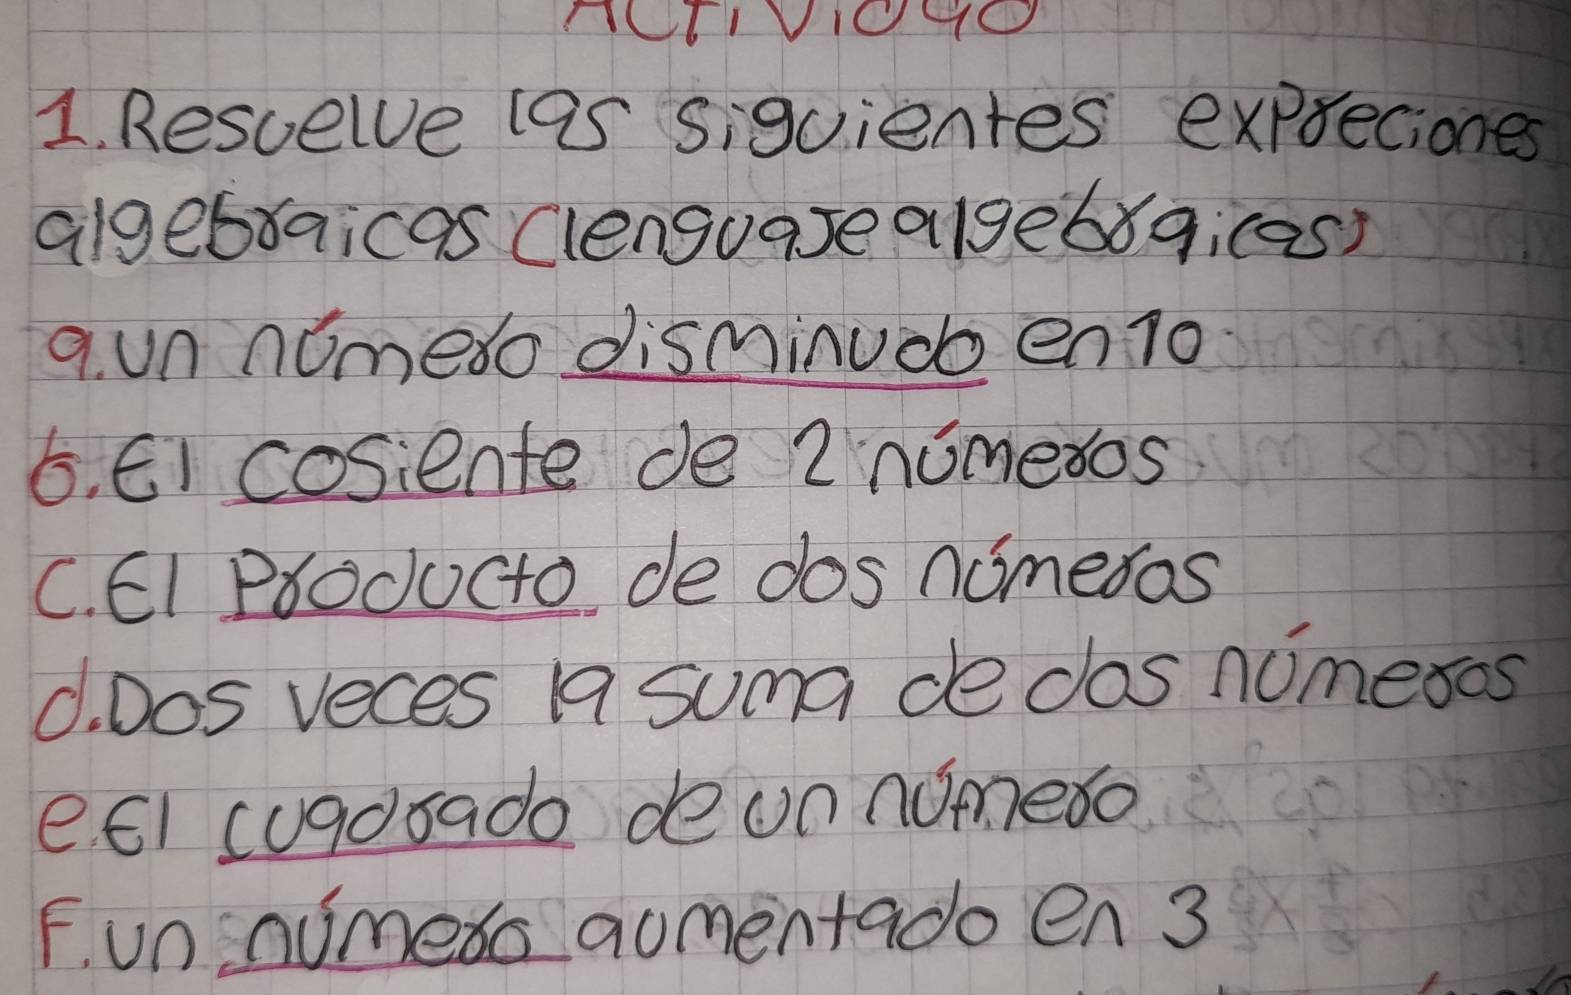 Actividad
1. Resuelve las siguientes expreciones
algebraicas (lenguaje algebraicas)
a. un número disminudo en 10
b. El cosiente de 2 números
c. El Producto de dos números
d. Dos veces la suma de dos números
e. El cuadrado de un número
F. un número aumentado en 3